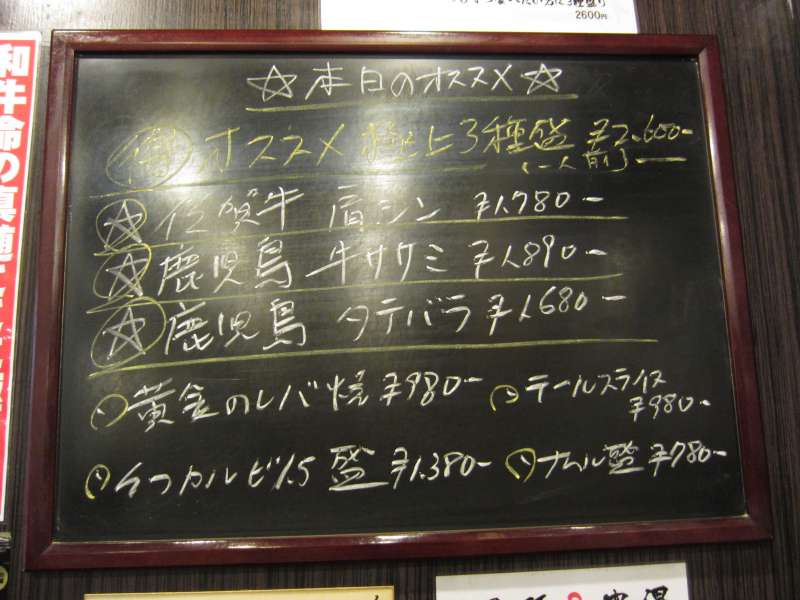 2600円
和牛命の真髄
☆本日のオススメ☆
オススメ 極上3種盛 ¥2,600-
(一人前)
☆佐賀牛 肩シン ¥1,780-
☆鹿児島 牛ササミ ¥1,890-
☆鹿児島 タテバラ ¥1,680-
黄金のレバ焼 ¥980-
テールスライス
¥980-
カルビ1.5盛 ¥1,380-
ナムル盛 ¥780-